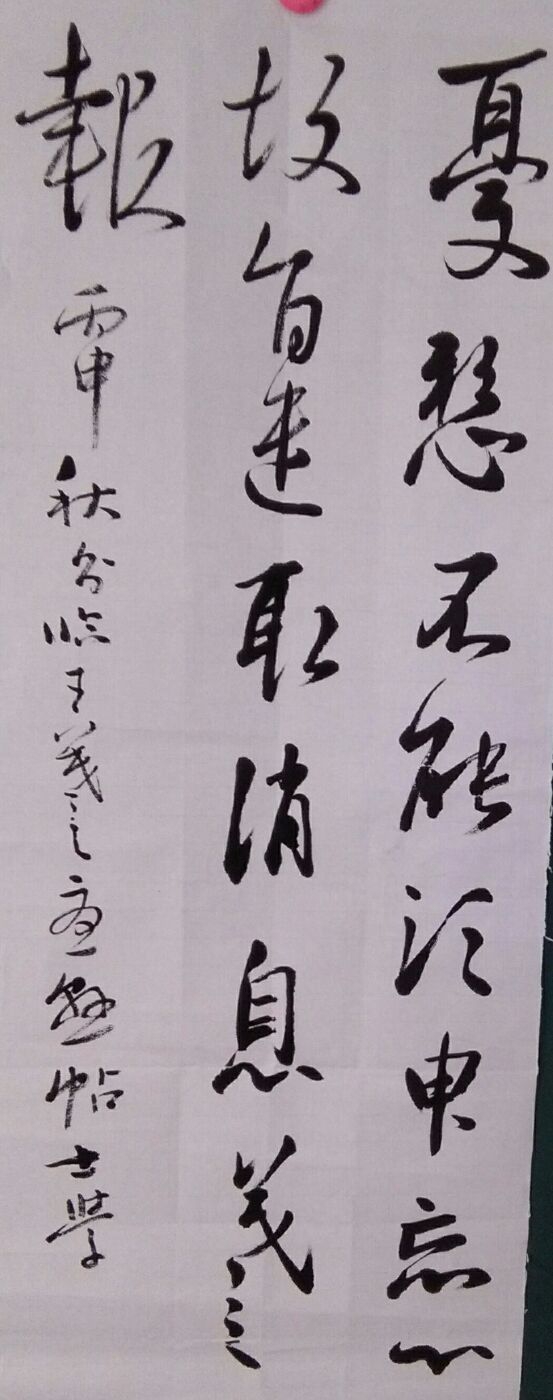 憂愁不能須申忘心
故旨遣取消息羲之
報
丙申秋分臨王羲之憂懸帖士學